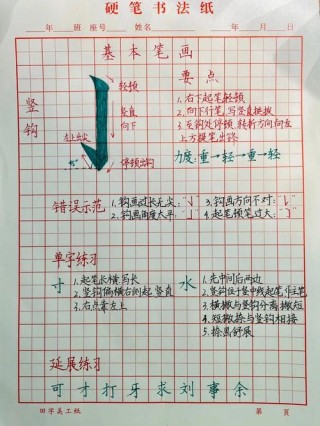 硬笔书法纸
年 班 座号 姓名 年 月 日
基本笔画
竖钩
轻顿
竖直向下
左上出尖
停顿出钩
要点
1.右下起笔轻顿
2.向下行笔,写竖挺拔
3.至钩处停顿,转折方向向左
上方提笔出锋
力度:重→轻→重→轻
错误示范
1.钩画过长无尖:
2.钩画角度太平:
3.钩画方向不对:
4.起笔顿笔过大:
单字练习
寸
1.起笔长横写长
2.竖钩偏横右侧起竖直
3.右点靠左上
水
1.先中间后两边
2.竖钩位于竖中线起笔作主笔
3.横撇与竖钩分离撇短
4.短撇捺与竖钩相接
5.捺画舒展
延展练习
可才打牙求刘事余
田字美工纸
第 页